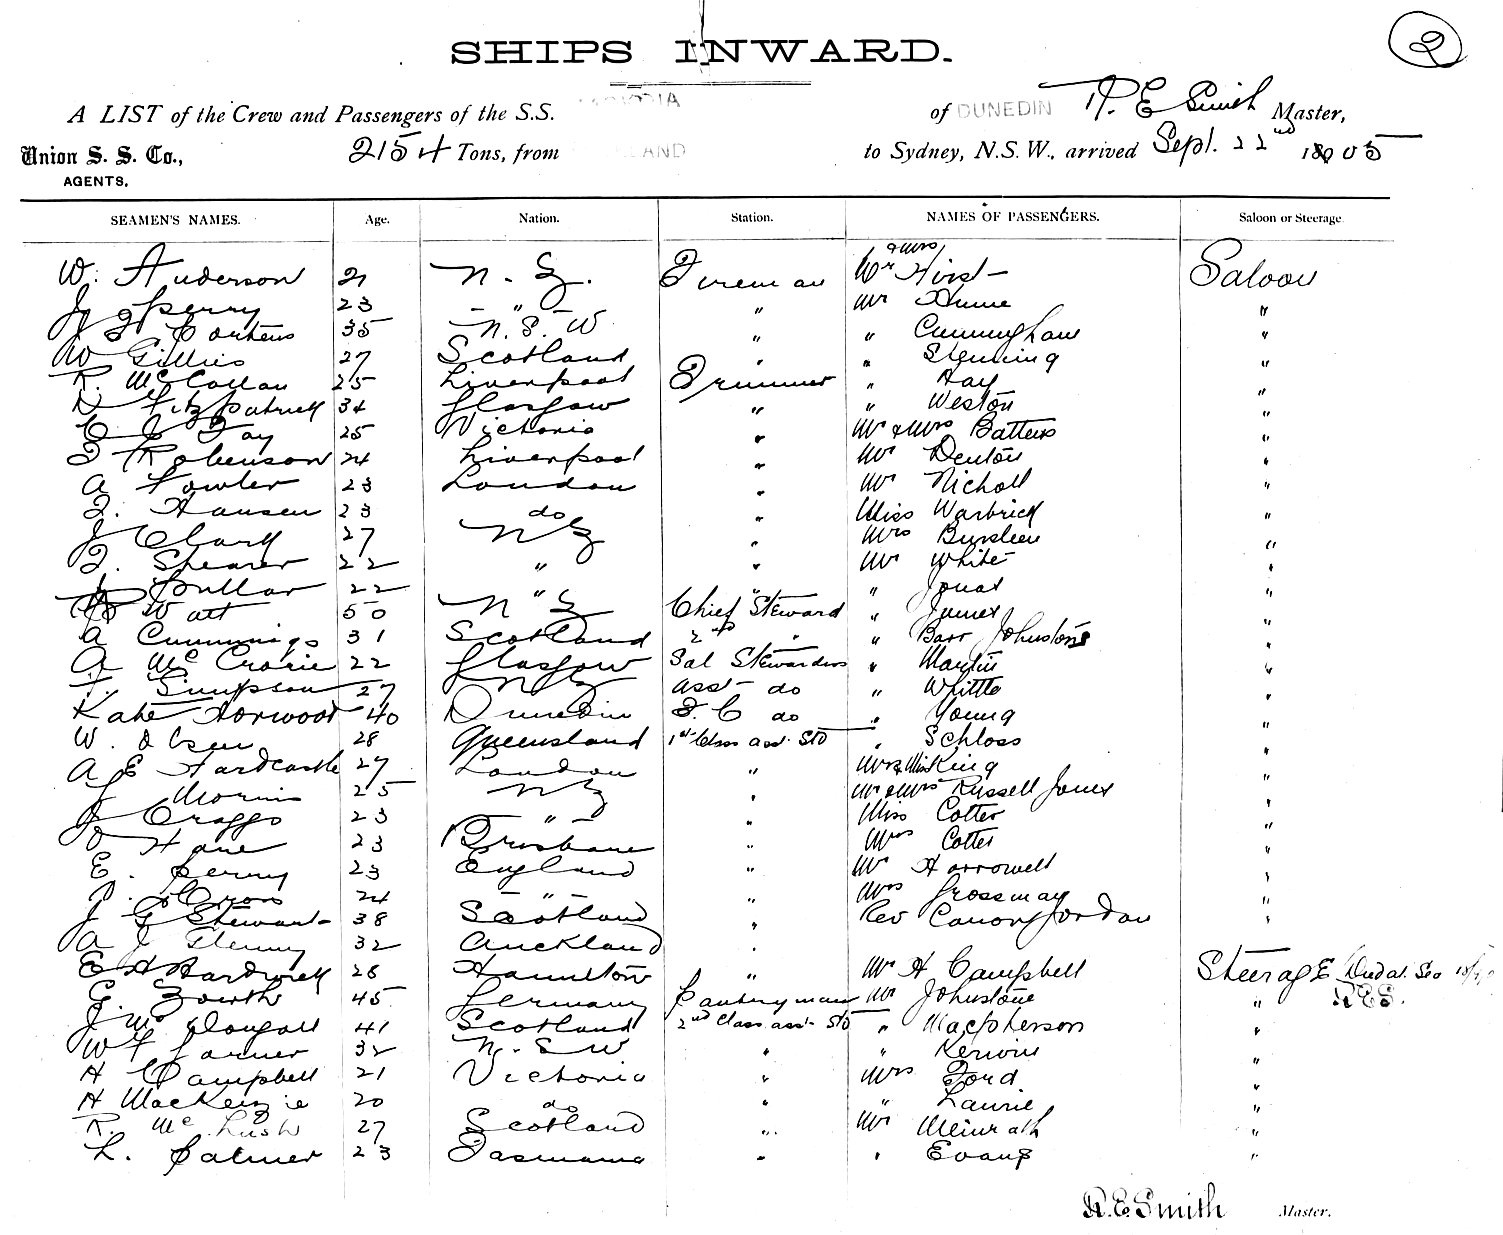 2
SHIPS INWARD.
A LIST of the Crew and Passengers of the S.S. of DUNEDIN R. E Smith Master,
Union S. S. Co., 2154 Tons, from to Sydney, N.S.W., arrived Sept. 22nd 1905
AGENTS.
SEAMEN'S NAMES. Age. Nation. Station. NAMES OF PASSENGERS. Saloon or Steerage
W. Anderson 21 N. Z. Fireman Mr & Mrs Hirst Saloon
J Perry 23 - " - " Mr Hume "
35 N. S. W " " Cunningham "
W Gillies 27 Scotland " " Fleming "
R. McCallan 25 Liverpool Trimmer " Hay "
D Fitzpatrick 34 Glasgow " " Weston "
C J Fay 25 Victoria " Mr & Mrs Batters "
T Robenson 24 Liverpool " Mr Denton "
A Fowler 23 London " Mr Nicholl "
Hansen 23 do " Miss Warbrick "
J Clark 27 N Z " Mrs "
Shearer 22 " " Mr White "
22 " " "
Watt 50 N Z Chief Steward " James "
A Cummings 31 Scotland 2nd " " Barr Johnstone "
A McCrorie 22 Glasgow Sal Stewardess " Martin "
Simpson 27 N Z asst do " Whittle "
Kate Horwood 40 Dunedin do " Young "
W. Olsen 28 Queensland 1st Class asst Std " Schloss "
A E Hardcastle 27 London " Mrs & Miss King "
J Morris 25 N Z " Mr & Mrs Russell Jones "
J Craggs 23 " " Miss Cotter "
Hane 23 Brisbane " Mrs Cotter "
E. Perry 23 England " Mr Horrowell "
24 - " - " Mrs Grossman "
J G Stewart 38 Scotland " Rev Canon Jordan "
A J 32 Auckland "
E H Hardwick 28 Hamilton " Mr H Campbell Steerage
45 Germany Pantryman Mr Johnstone " R.E.S.
J McDougall 41 Scotland 2nd Class asst Std " Macpherson "
W F Farmer 32 N. S W " " Kerwin "
H Campbell 21 Victoria " Mrs Ford "
H MacKenzie 20 do " " Laurie "
R. Mc 27 Scotland " Mr Meinrath "
L. Palmer 23 Tasmania " " Evans "
R.E.Smith Master.